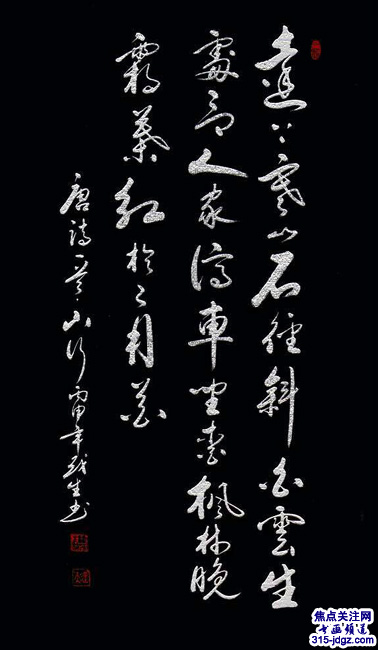 遠上寒山石徑斜白雲生
處有人家停車坐愛楓林晚
霜葉紅於二月花
唐詩一首山行丙申年生书
焦点关注网
书画频道
315-jdgz.com